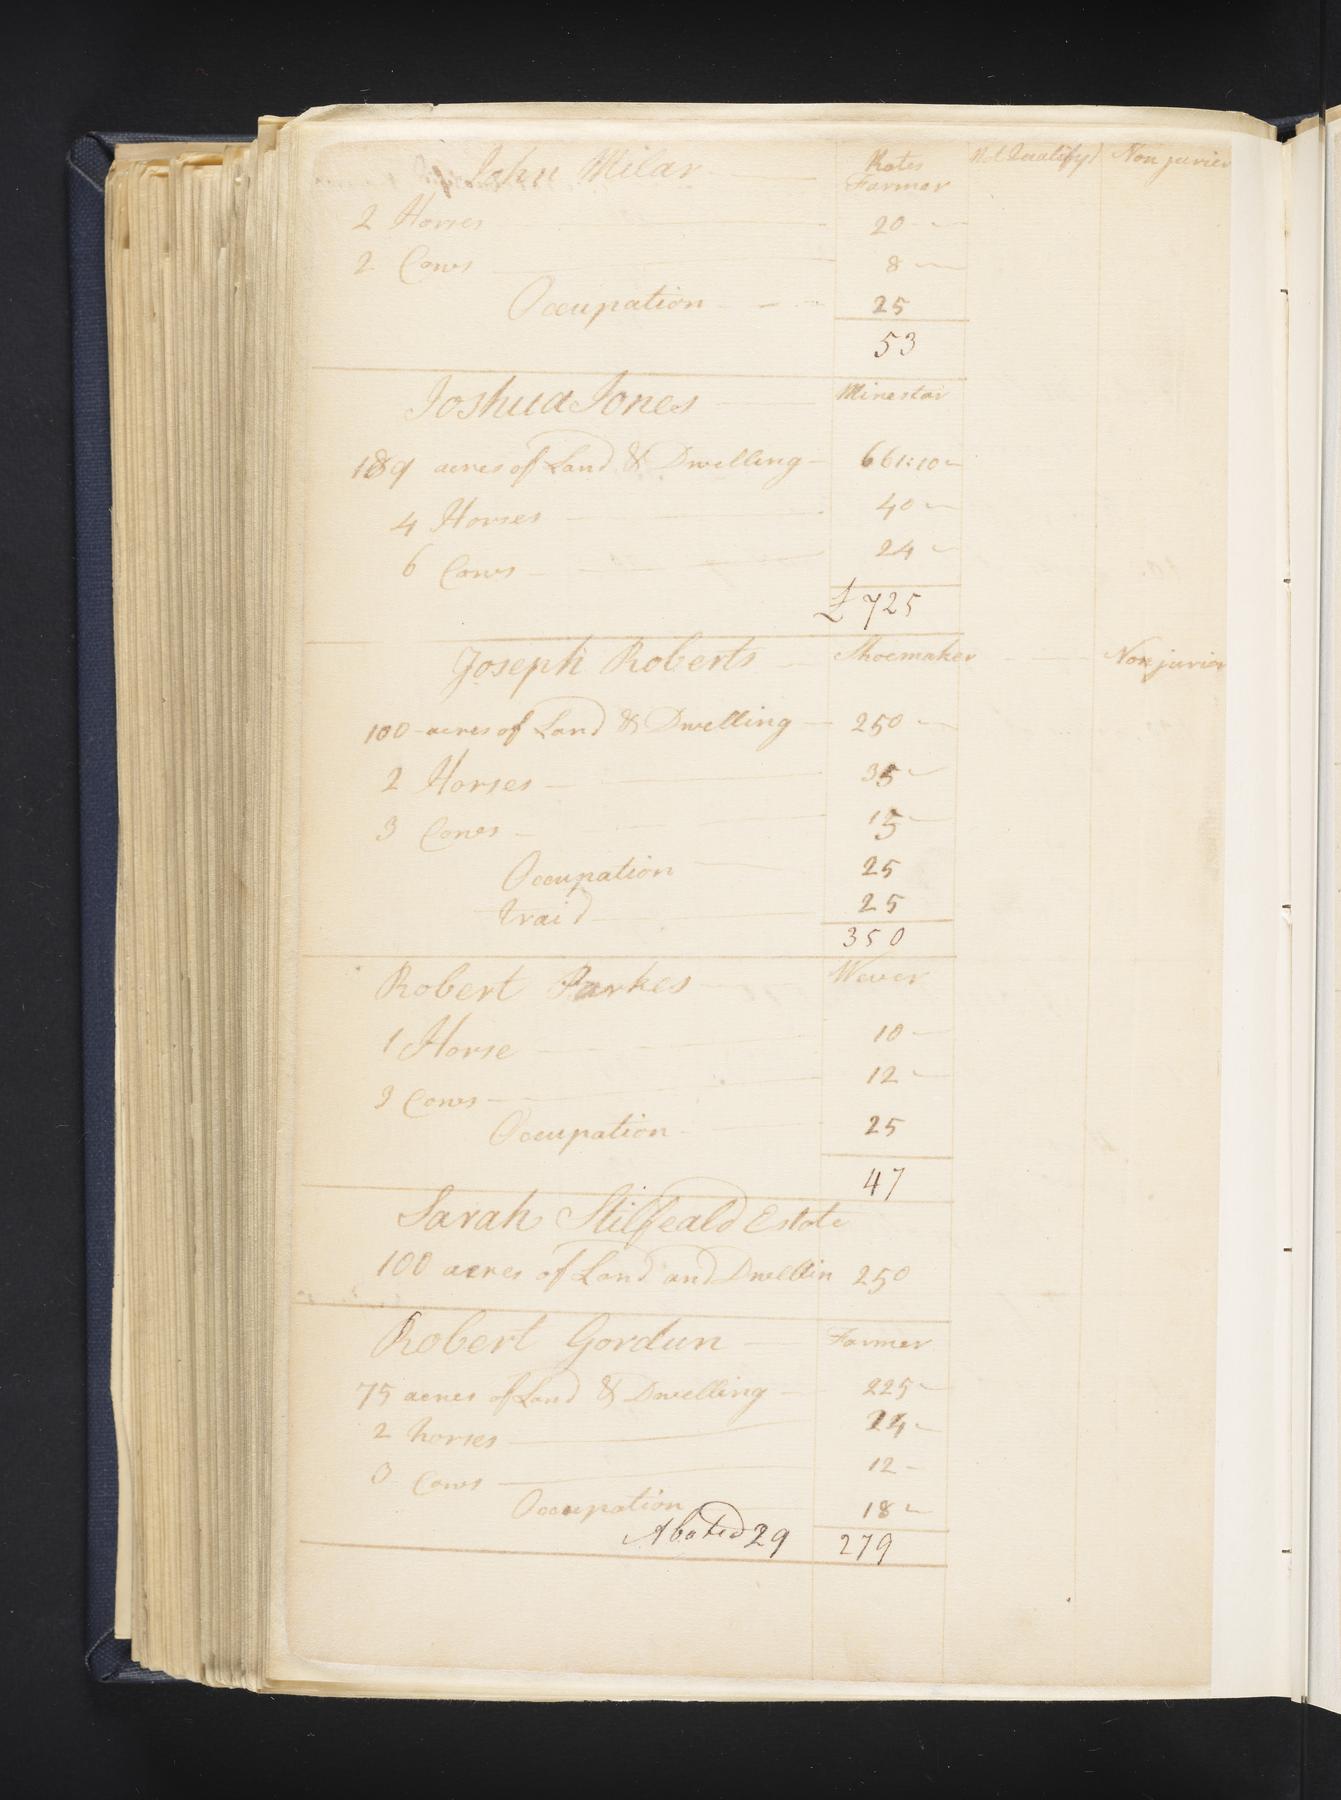 John Milar Rates Not Qualify'd Non jurier
Farmer
2 Horses 20
2 Cows 8
Occupation 25
53
Joshua Jones Minestar
189 acres of Land & Dwelling 661:10
4 Horses 40
6 Cows 24
£ 725
Joseph Roberts Shoemaker Non jurier
100 acres of Land & Dwelling 250
2 Horses 35
3 Cows 15
Occupation 25
Traid 25
350
Robert Parkes Wever
1 Horse 10
3 Cows 12
Occupation 25
47
Sarah Stilfeald Estate
100 acres of Land and Dwellin 250
Robert Gordun Farmer
75 acres of Land & Dwelling 225
2 horses 24
3 Cows 12
Occupation 18
Abated 29 279